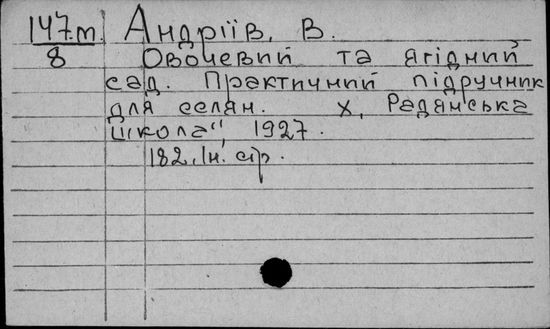 147.т. Андріїв, В.
8 Овочевий та ягідний
сад. Практичний підручник
для селян. Х, Радянська
школа", 1927.
182, Ін. стр.